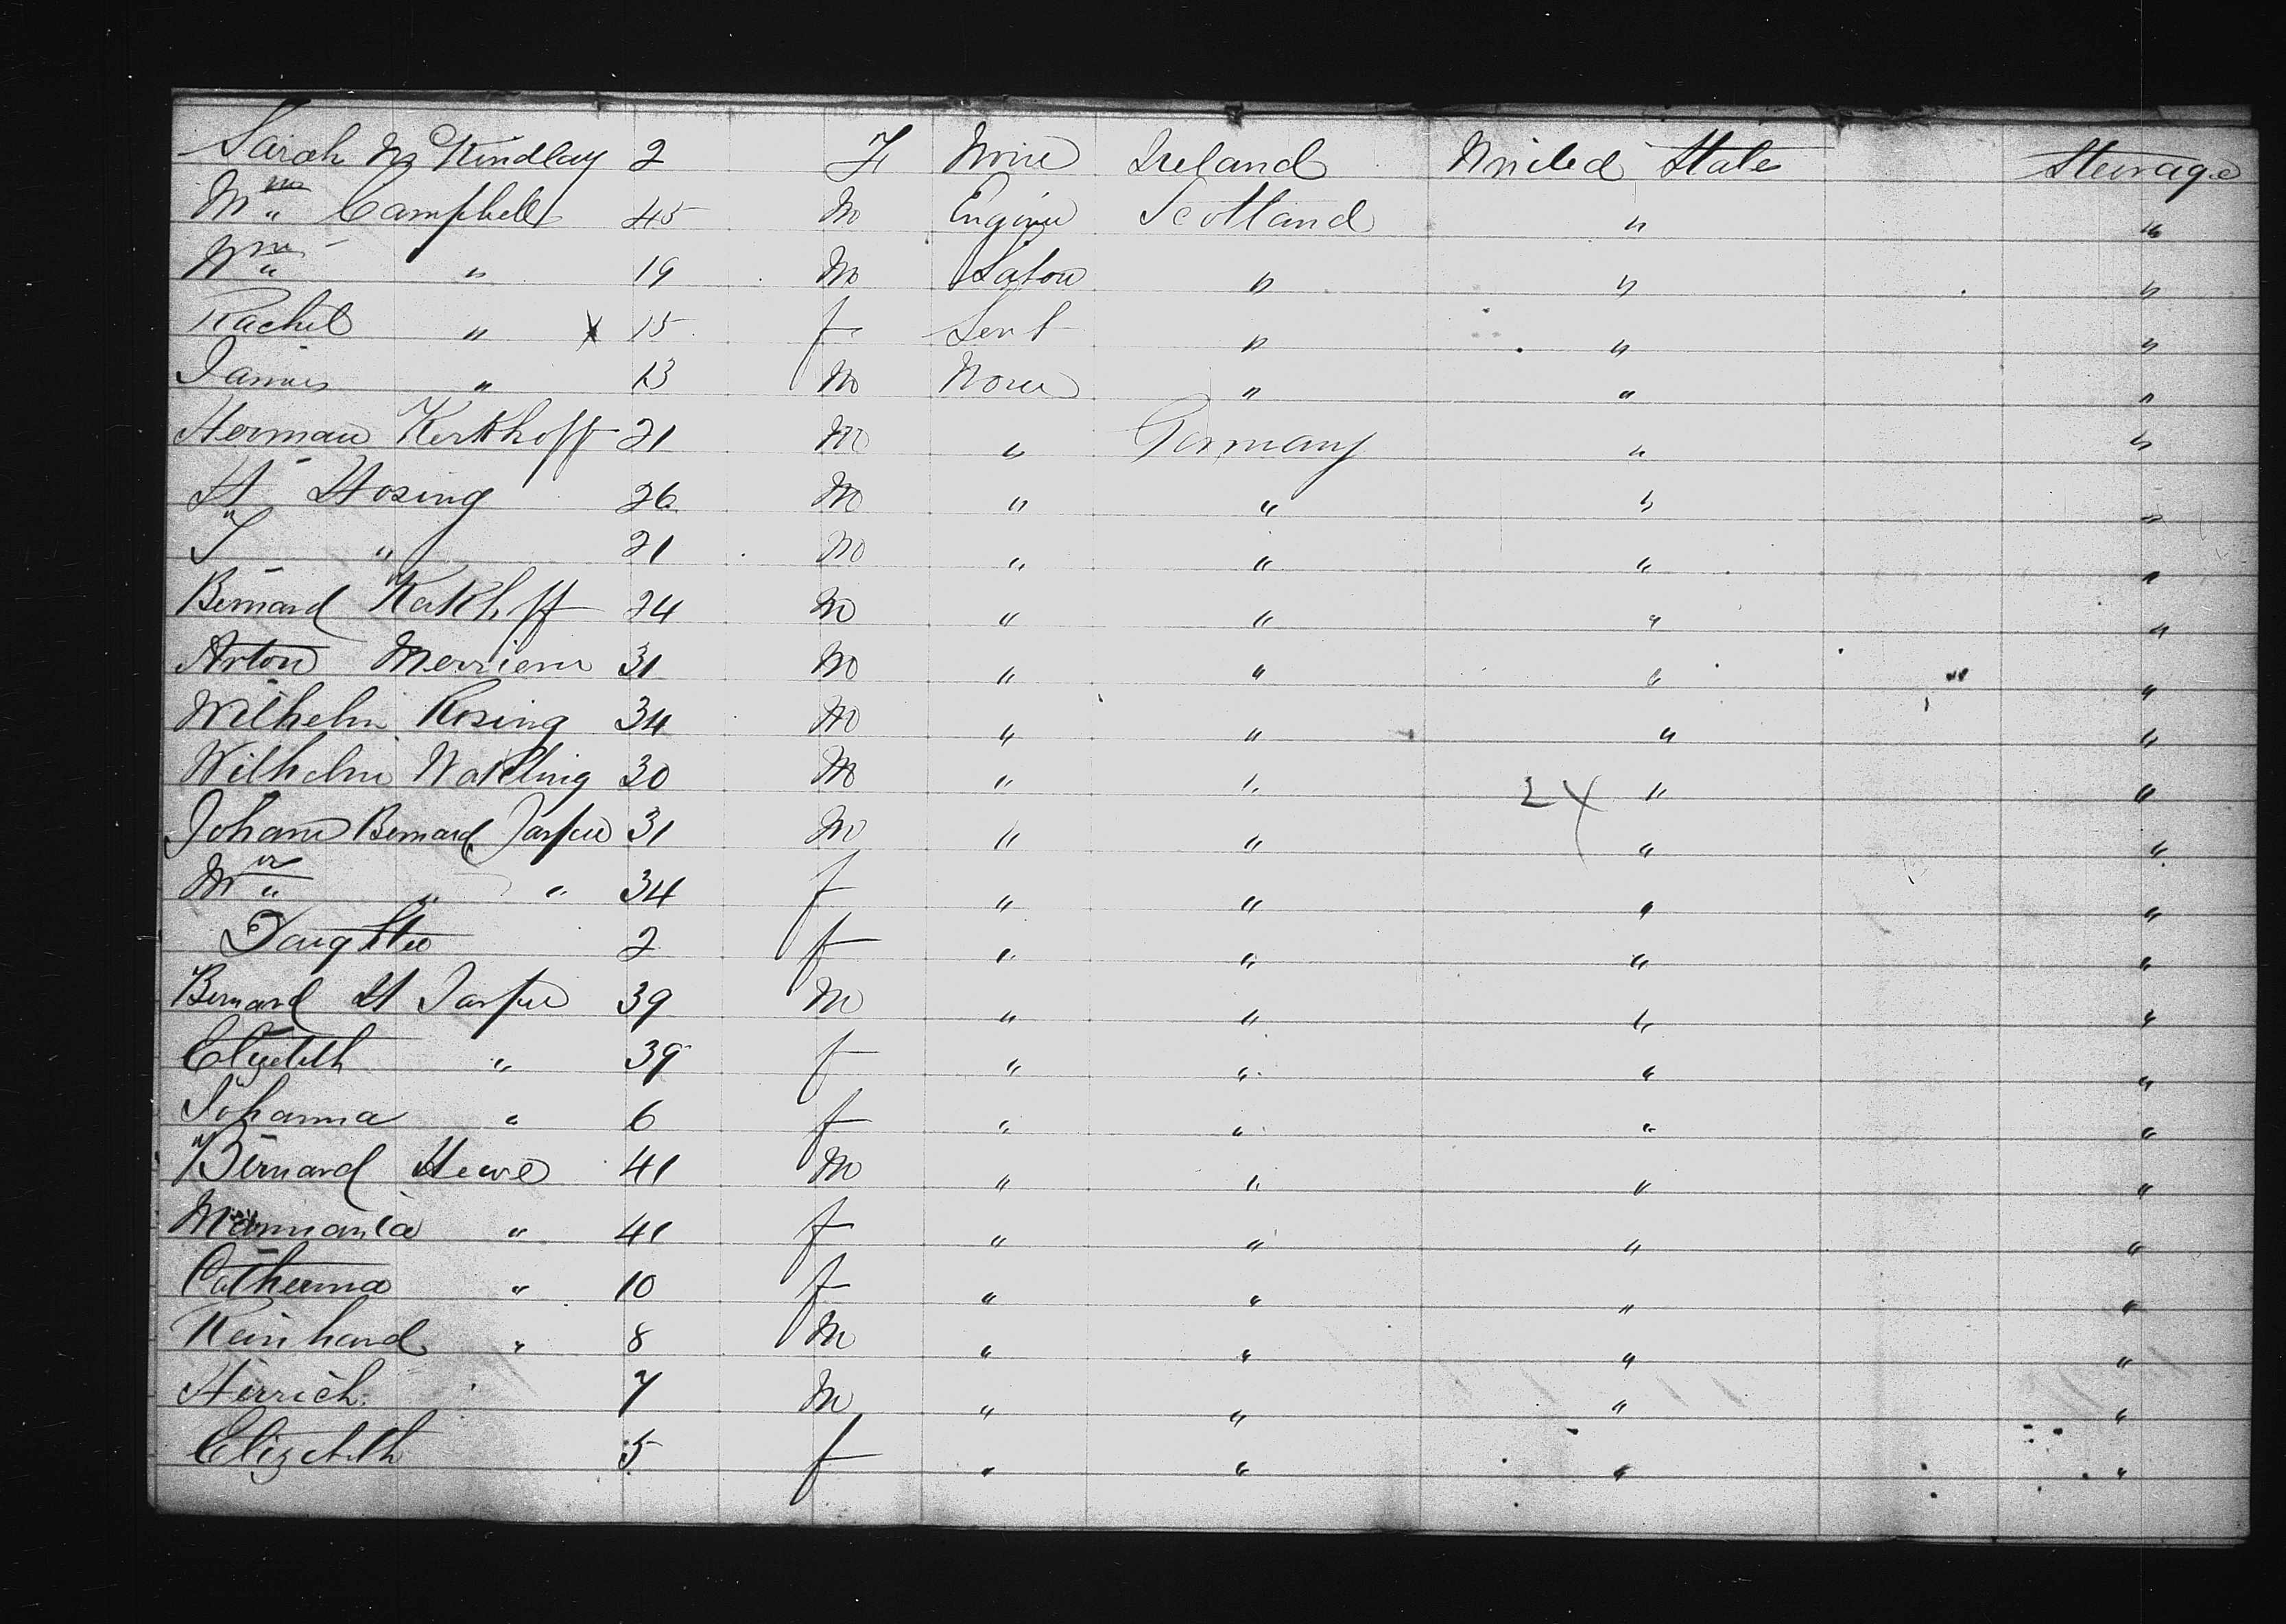 Sarah Mc Kindlay 2 F None Ireland United State Steerage
Wm Campbell 45 M Engine Scotland " "
Wm " 19 M Labou " " "
Rachel " X 15 f Sert " " "
James " 13 M None " " "
Herman Kerkhoff 21 M " Germany " "
H Hosing 26 M " " " "
J " 21 M " " " "
Bernard Kerkhoff 24 M " " " "
Anton 31 M " " " "
Wilhelm Rosing 34 M " " " "
Wilhelm 30 M " " 24 " "
Johann Bernard 31 M " " " "
Mrs " " 34 f " " " "
Daughter 2 f " " " "
Bernard H 39 M " " " "
Elizabeth " 39 f " " " "
Johanna " 6 f " " " "
Bernard Hewe 41 M " " " "
" 41 f " " " "
Catherina " 10 f " " " "
Reinhard " 8 M " " " "
Herrich 7 M " " " "
Elizabeth 5 f " " " "